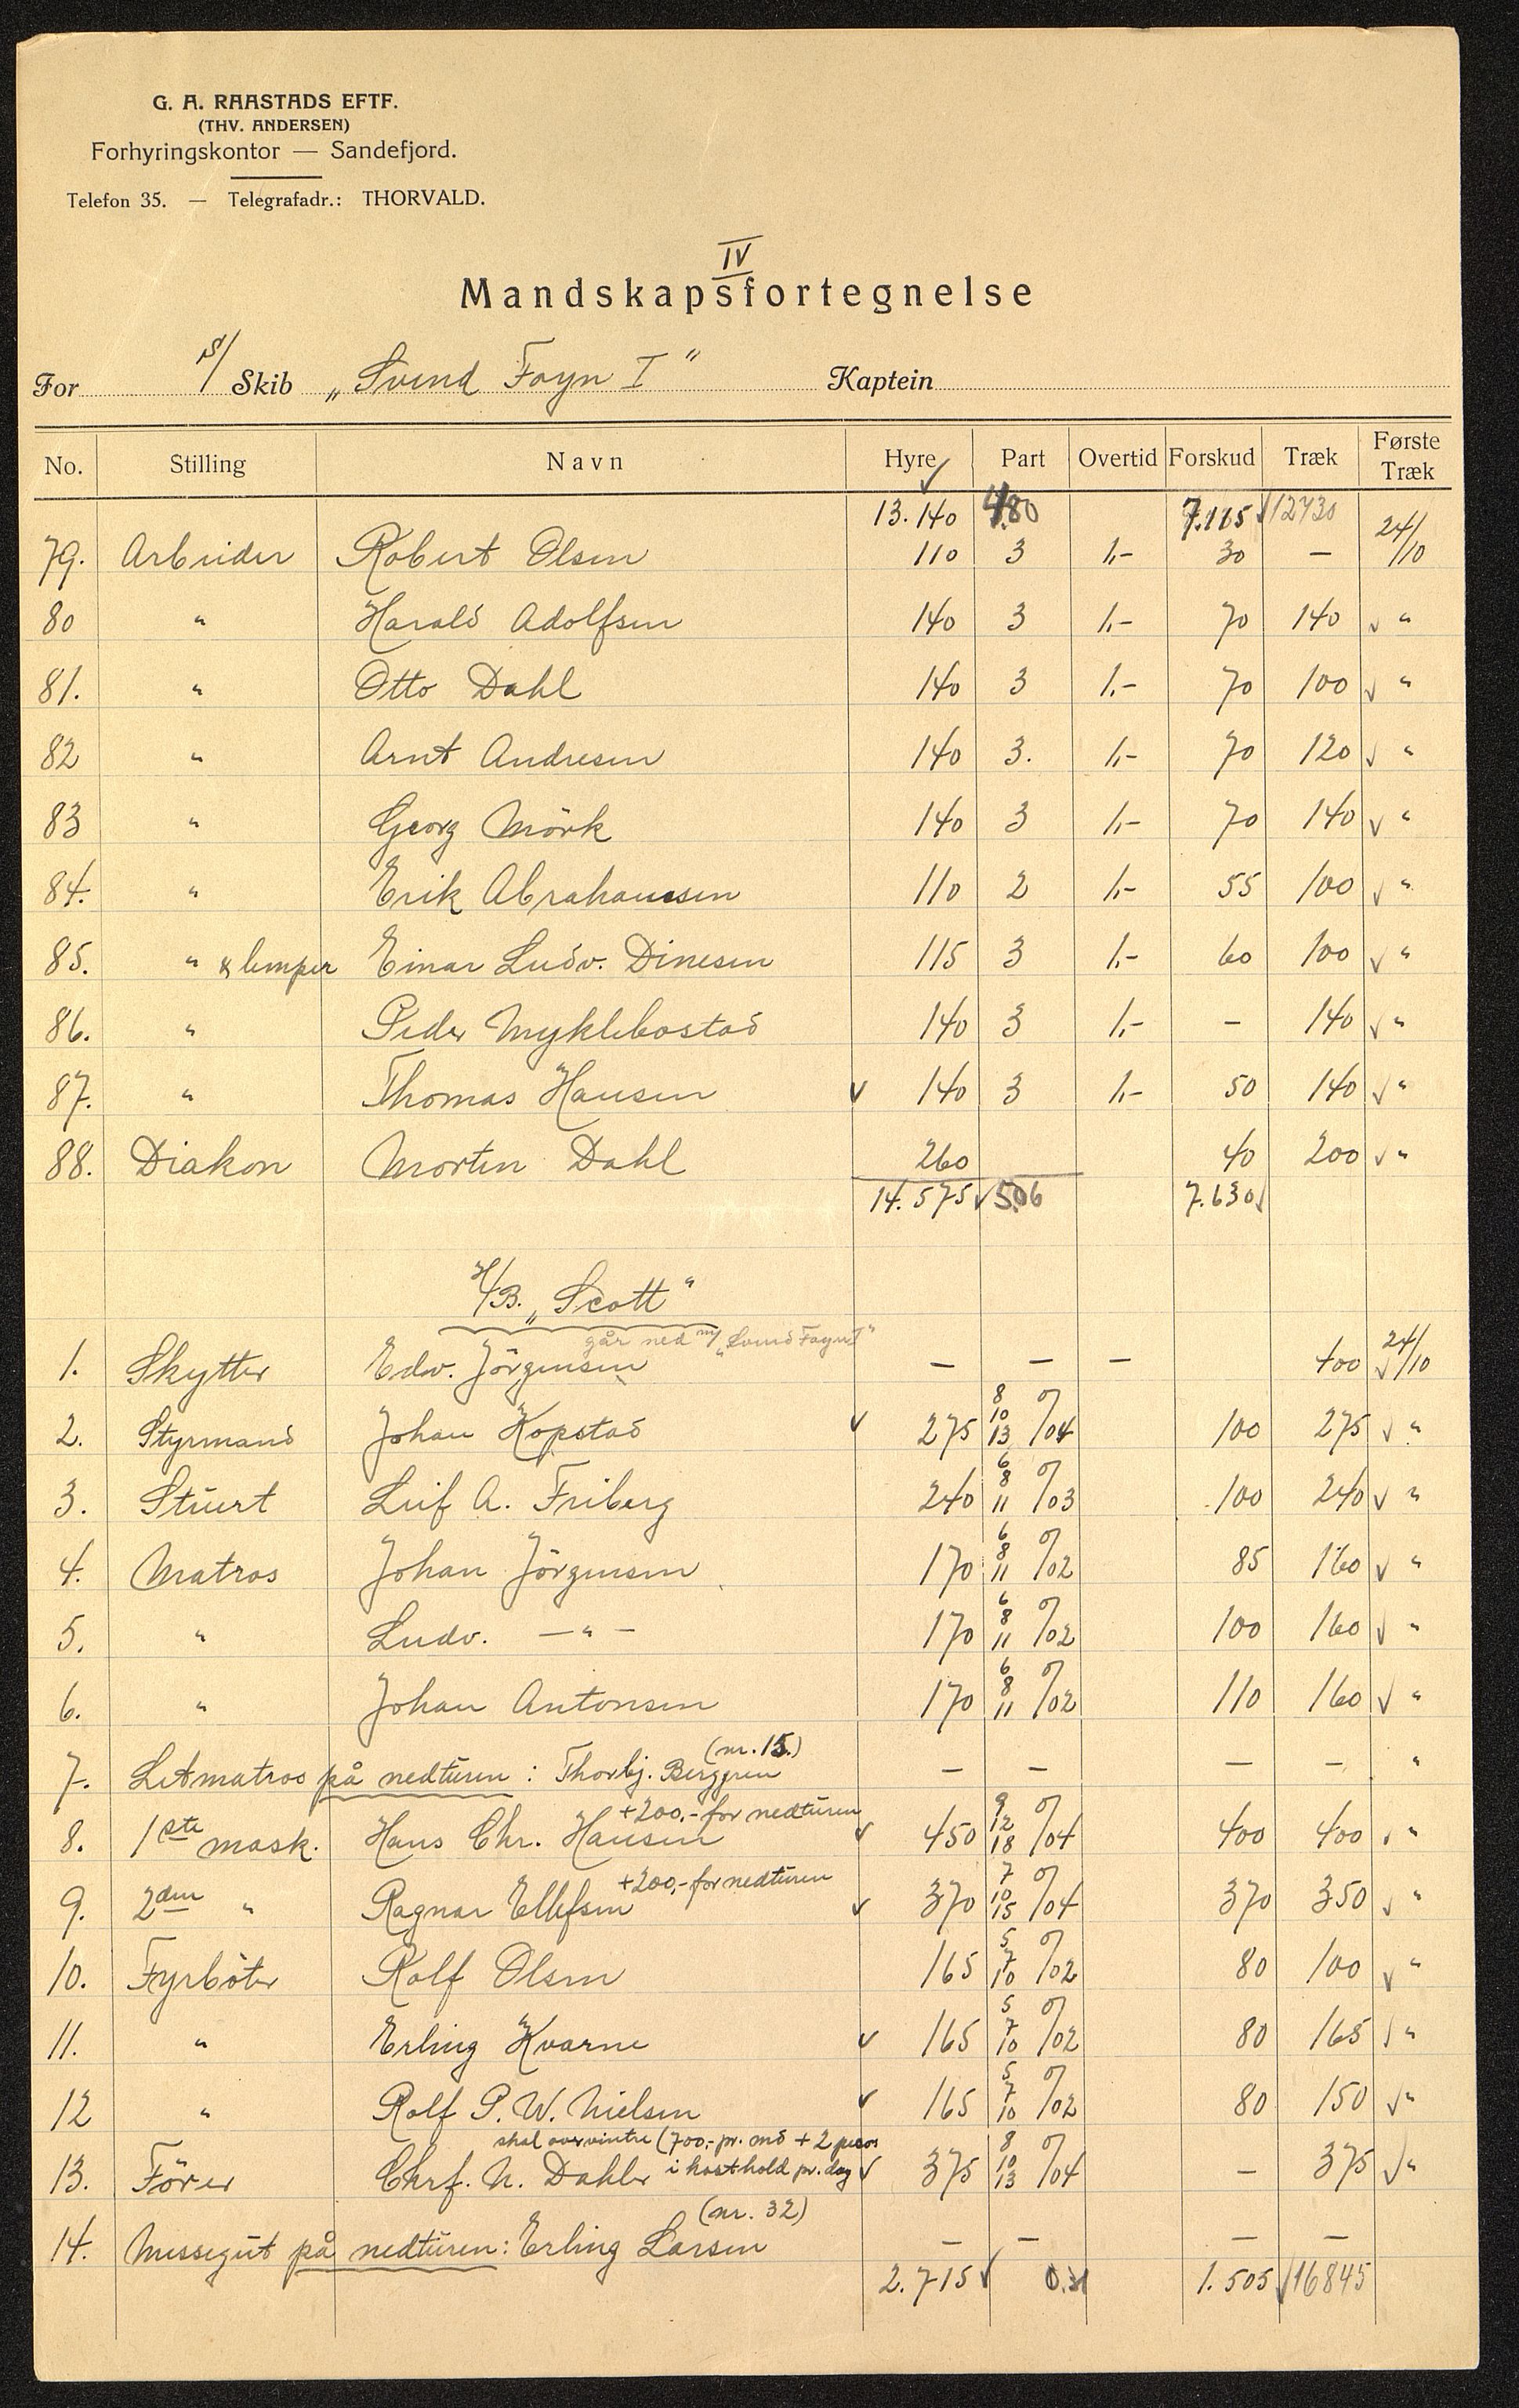 G. A. RAASTADS EFTF.
(THV. ANDERSEN)
Forhyringskontor — Sandefjord.
Telefon 35. — Telegrafadr.: THORVALD.
IV
Mandskapsfortegnelse
For S/ Skib „Svend Foyn I" Kaptein
No. Stilling Navn Hyre Part Overtid Forskud Træk Første Træk
13.140 4.80 7.115 12730
79. Arbeider Robert Olsen 110 3 1,- 30 — 24/10
80 " Harald Adolfsen 140 3 1,- 70 140 "
81. " Otto Dahl 140 3 1,- 70 100 "
82 " Arnt Andresen 140 3. 1,- 70 120 "
83 " Georg Mörk 140 3 1,- 70 140 "
84. " Erik Abrahamsen 110 2 1,- 55 100 "
85. " & lemper Einar Ludv. Dinesen 115 3 1,- 60 100 "
86. " Peder Myklebostad 140 3 1,- - 140 "
87. " Thomas Hansen 140 3 1,- 50 140 "
88. Diakon Morten Dahl 260 40 200 "
14.575 5.06 7.630
H/B. „Scott"
går ned m/ „Svend Foyn I"
1. Skytter Edv. Jörgensen — — — 400 24/10
2. Styrmand Johan Kopstad 275 8 10 13 0/04 100 275 "
3. Stuert Leif A. Friberg 240 6 8 11 0/03 100 240 "
4. Matros Johan Jörgensen 170 6 8 11 0/02 85 160 "
5. " Ludv. —"— 170 6 8 11 0/02 100 160 "
6. " Johan Antonsen 170 6 8 11 0/02 110 160 "
(nr. 15.)
7. Letmatros på nedturen: Thorbj. Berggren — — — — "
+200,- for nedturen
8. 1ste mask. Hans Chr. Hansen 450 9 12 18 0/04 400 400 "
+200,- for nedturen
9. 2den " Ragnar Ellefsen 370 7 10 15 0/04 370 350 "
10. Fyrböter Rolf Olsen 165 5 7 10 0/02 80 100 "
11. " Erling Kvarne 165 5 7 10 0/02 80 165 "
12 " Rolf P. W. Nielsen 165 5 7 10 0/02 80 150 "
skal overvintre (700,- pr. md + 2 pesos
13. Förer Chrf. N. Dahler i kosthold pr. dag 375 8 10 13 0/04 — 375 "
(nr. 32)
14. Messegut på nedturen: Erling Larsen — — — —
2.715 0.31 1.505 16845